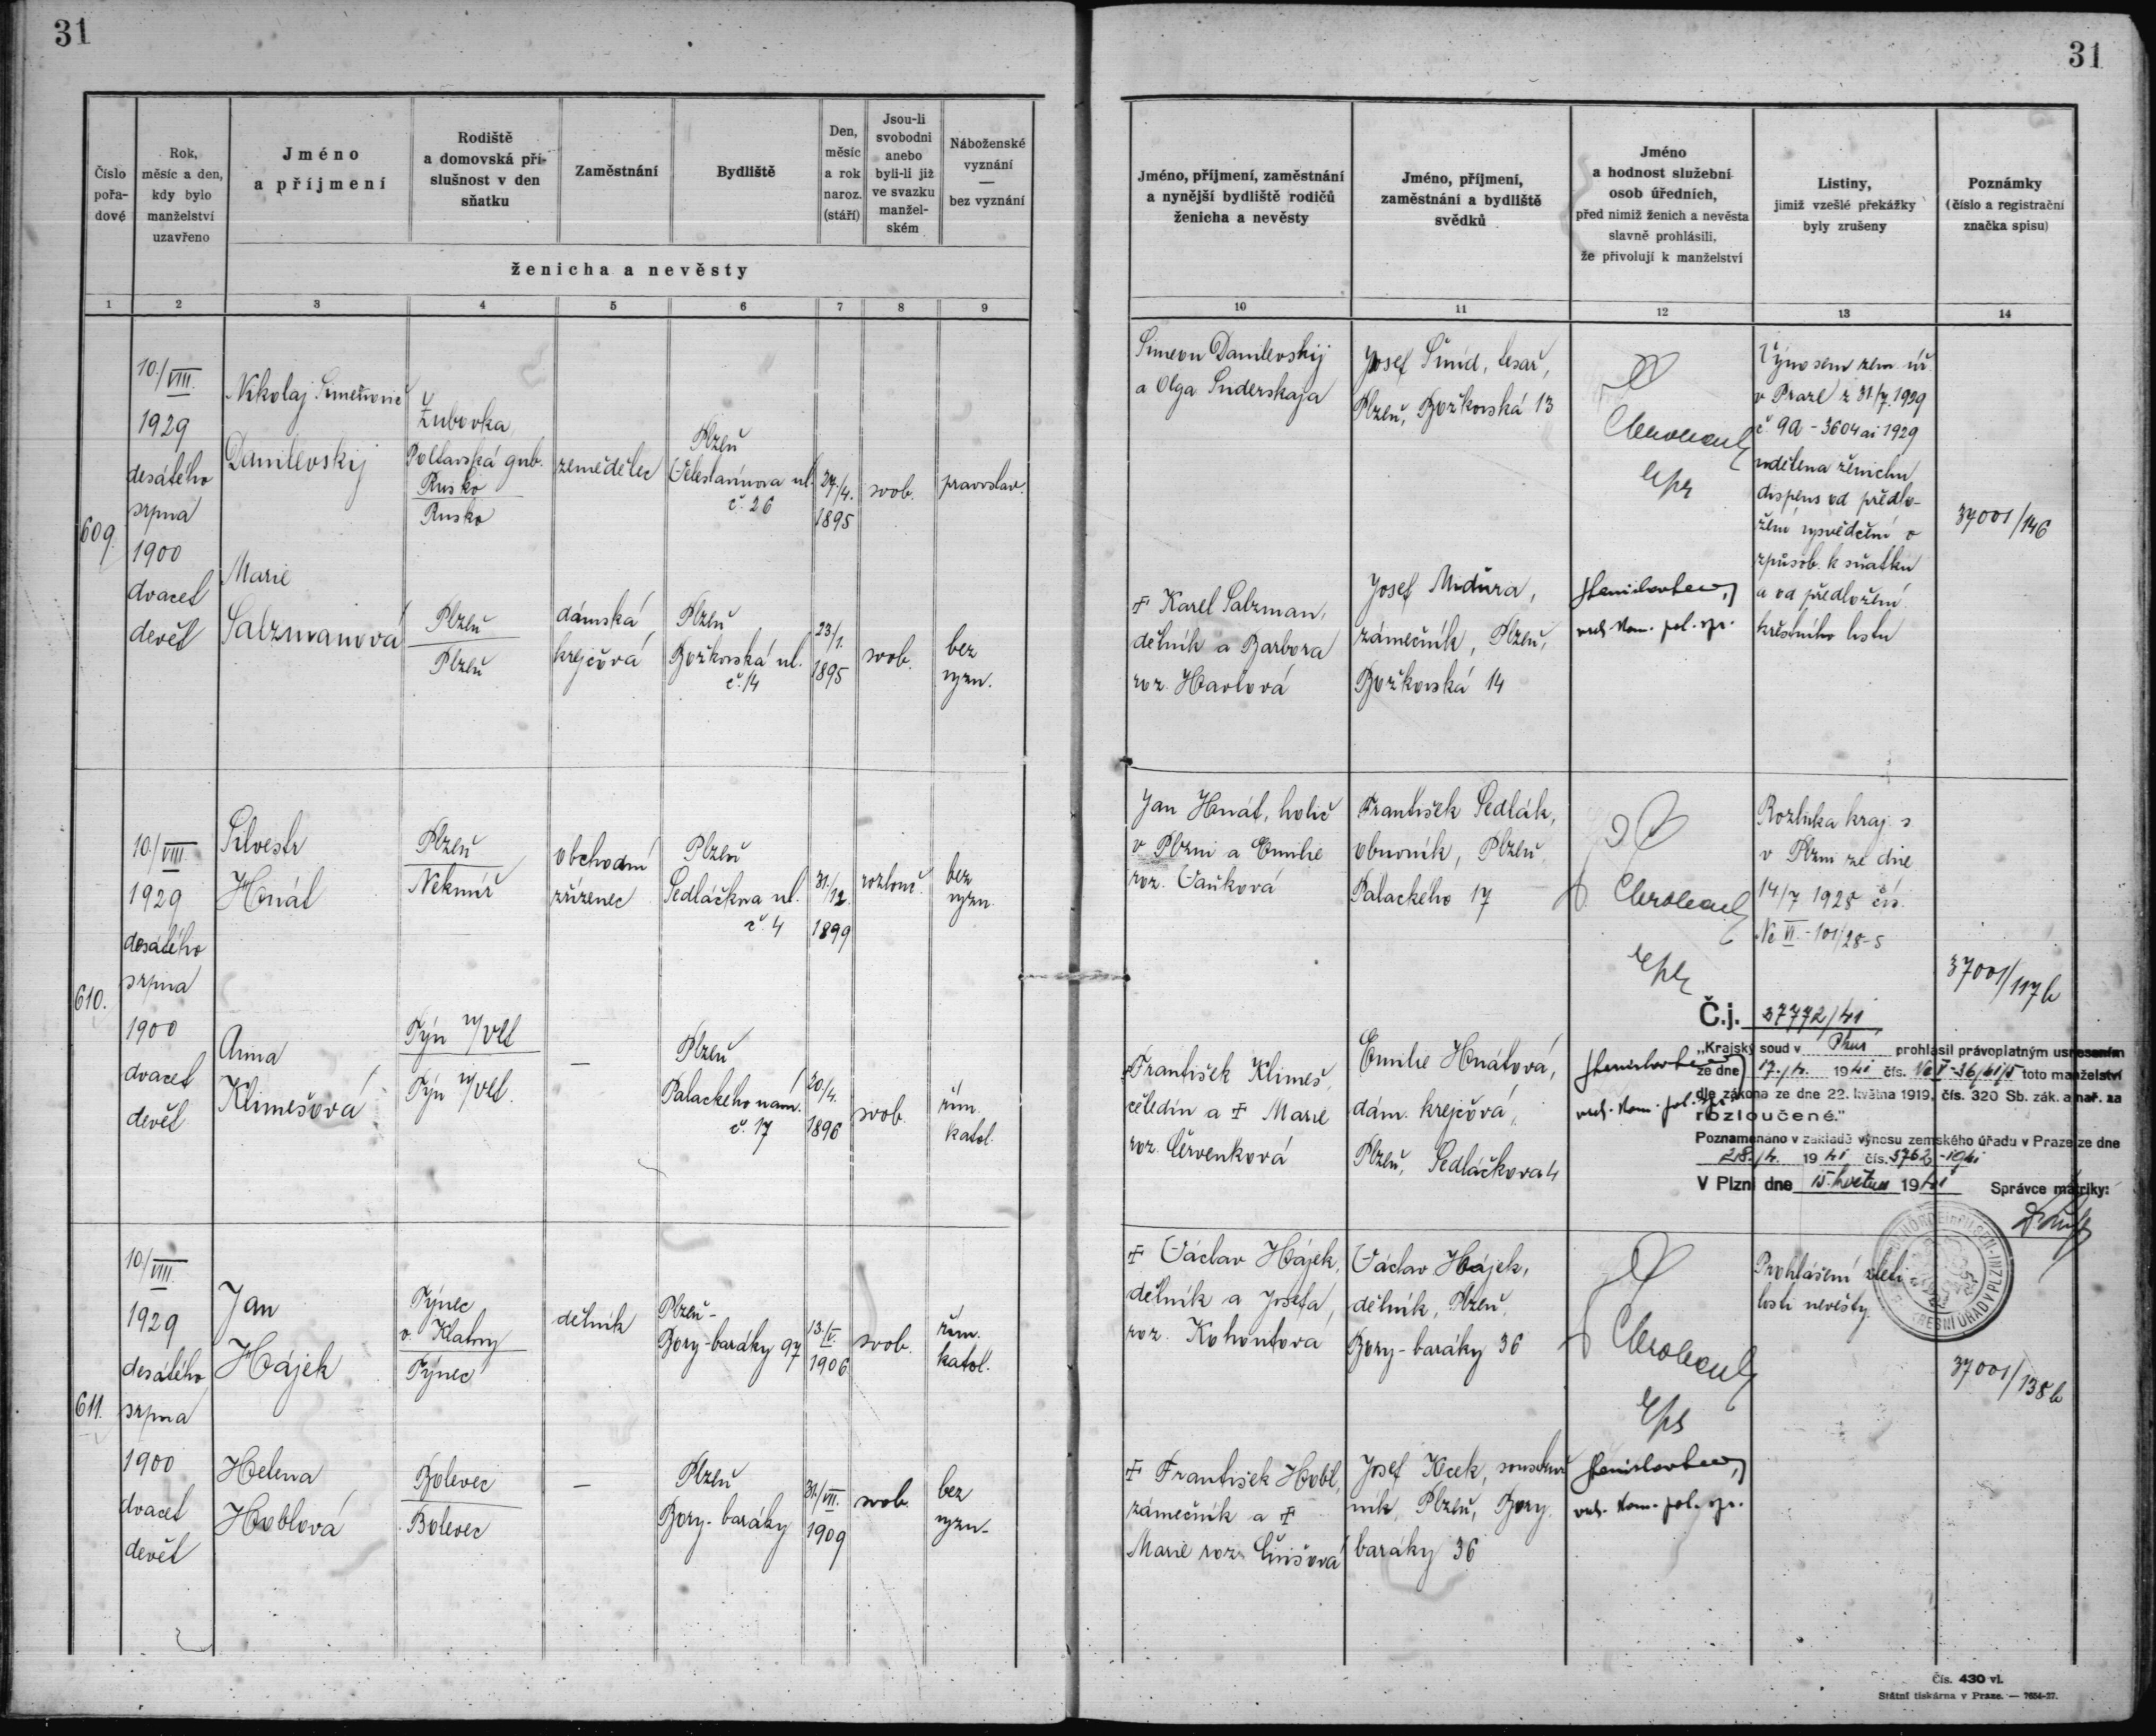 31
31
Číslo pořa-dové
Rok, měsíc a den, kdy bylo manželství uzavřeno
Jméno a příjmení
Rodiště a domovská pří-slušnost v den sňatku
Zaměstnání
Bydliště
Den, měsíc a rok naroz. (stáří)
Jsou-li svobodni anebo byli-li již ve svazku manžel-ském
Náboženské vyznání — bez vyznání
ženicha a nevěsty
Jméno, příjmení, zaměstnání a nynější bydliště rodičů ženicha a nevěsty
Jméno, příjmení, zaměstnání a bydliště svědků
Jméno a hodnost služební osob úředních, před nimiž ženich a nevěsta slavně prohlásili, že přivolují k manželství
Listiny, jimiž vzešlé překážky byly zrušeny
Poznámky (číslo a registrační značka spisu)
1 2 3 4 5 6 7 8 9 10 11 12 13 14
609.
10./VIII.
1929
desátého
srpna
1900
dvacet
devět
Nikolaj
Danilevskij
Poltavská gub.
Rusko
Rusko
zemědělec
Plzeň
Veleslavínova ul.
č. 26
27./4.
1895
svob.
pravoslav.
Simeon Danilevskij
a Olga
Josef Šmíd, tesař,
Plzeň, Božkovská 13
Výnosem zem. úř.
v Praze z 31./7. 1929
č. 9a - 3604 ai 1929
udělena ženichu
dispens od předlo-
žení vysvědčení o
způsob. k sňatku
a od předložení
křestního listu
37001/146
Marie
Salzmanová
Plzeň
Plzeň
dámská
krejčová
Plzeň
Božkovská ul.
č. 14
23/1.
1895
svob.
bez
vyzn.
† Karel Salzman,
dělník a Barbora
roz. Havlová
Josef Midura,
zámečník, Plzeň,
Božkovská 14
vrch. kom. pol. spr.
610.
10./VIII.
1929
desátého
srpna
1900
dvacet
devět
Silvestr
Hnát
Plzeň
Nekmíř
obchodní
zřízenec
Plzeň
Sedláčkova ul.
č. 4
31./12.
1899
rozlouč.
bez
vyzn.
Jan Hnát, holič
v Plzni a Emilie
roz. Vaňková
František Sedlák,
obuvník, Plzeň,
Palackého 17
Rozluka kraj. s.
v Plzni ze dne
14/7 1928 čís.
Nc VI. - 101/28-5
37001/117b
Anna
Klimešová
Týn n/Vlt
Týn n/Vlt.
—
Plzeň
Palackého nám.
č. 17
20/4.
1896
svob.
řím.
katol.
František Klimeš,
čeledín a † Marie
roz. Červenková
Emilie Hnátová,
dám. krejčová,
Plzeň, Sedláčkova 4
vrch. kom. pol. spr.
Č.j. 37772/41
„Krajský soud v Plzni prohlásil právoplatným usnesením
ze dne 17./4. 1941 čís. toto manželství
dle zákona ze dne 22. května 1919, čís. 320 Sb. zák. a nař. za
rozloučené."
Poznamenáno v základě výnosu zemského úřadu v Praze ze dne
28./4. 1941 čís. 5762-1941
V Plzni dne 15. květen 1941 Správce matriky:
611.
10./VIII.
1929
desátého
srpna
1900
dvacet
devět
Jan
Hájek
Týnec
o. Klatovy
Týnec
dělník
Plzeň-
Bory-baráky 97
13./V.
1906
svob.
řím.
katol.
† Václav Hájek,
dělník a Josefa,
roz. Kohoutová
Václav Hájek,
dělník, Plzeň,
Bory-baráky 36
Prohlášení zleti
losti nevěsty.
37001/138b
Helena
Hoblová
Bolevec
Bolevec
—
Plzeň
Bory-baráky
31./VII.
1909
svob.
bez
vyzn.
† František Hobl,
zámečník a †
Marie roz.
Josef
ník, Plzeň, Bory
baráky 36
vrch. kom. pol. spr.
Čís. 430 vl.
Státní tiskárna v Praze. — 7654-27.